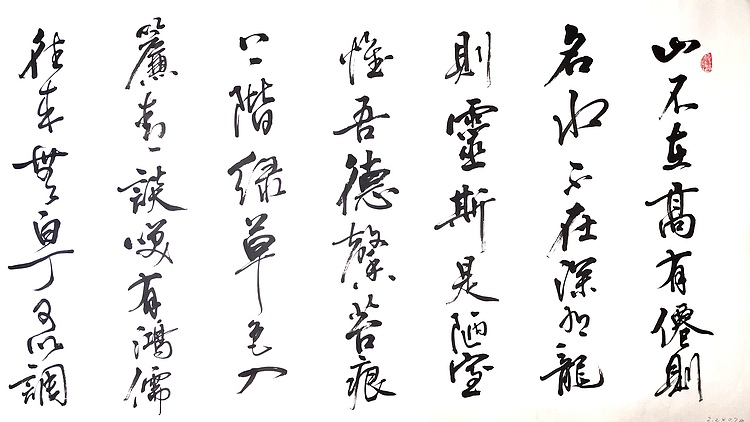 山不在髙有僊則
名水不在深有龍
則靈斯是陋室
惟吾德馨苔痕
上階緑草色入
簾青談咲有鴻儒
往来無白丁可以調